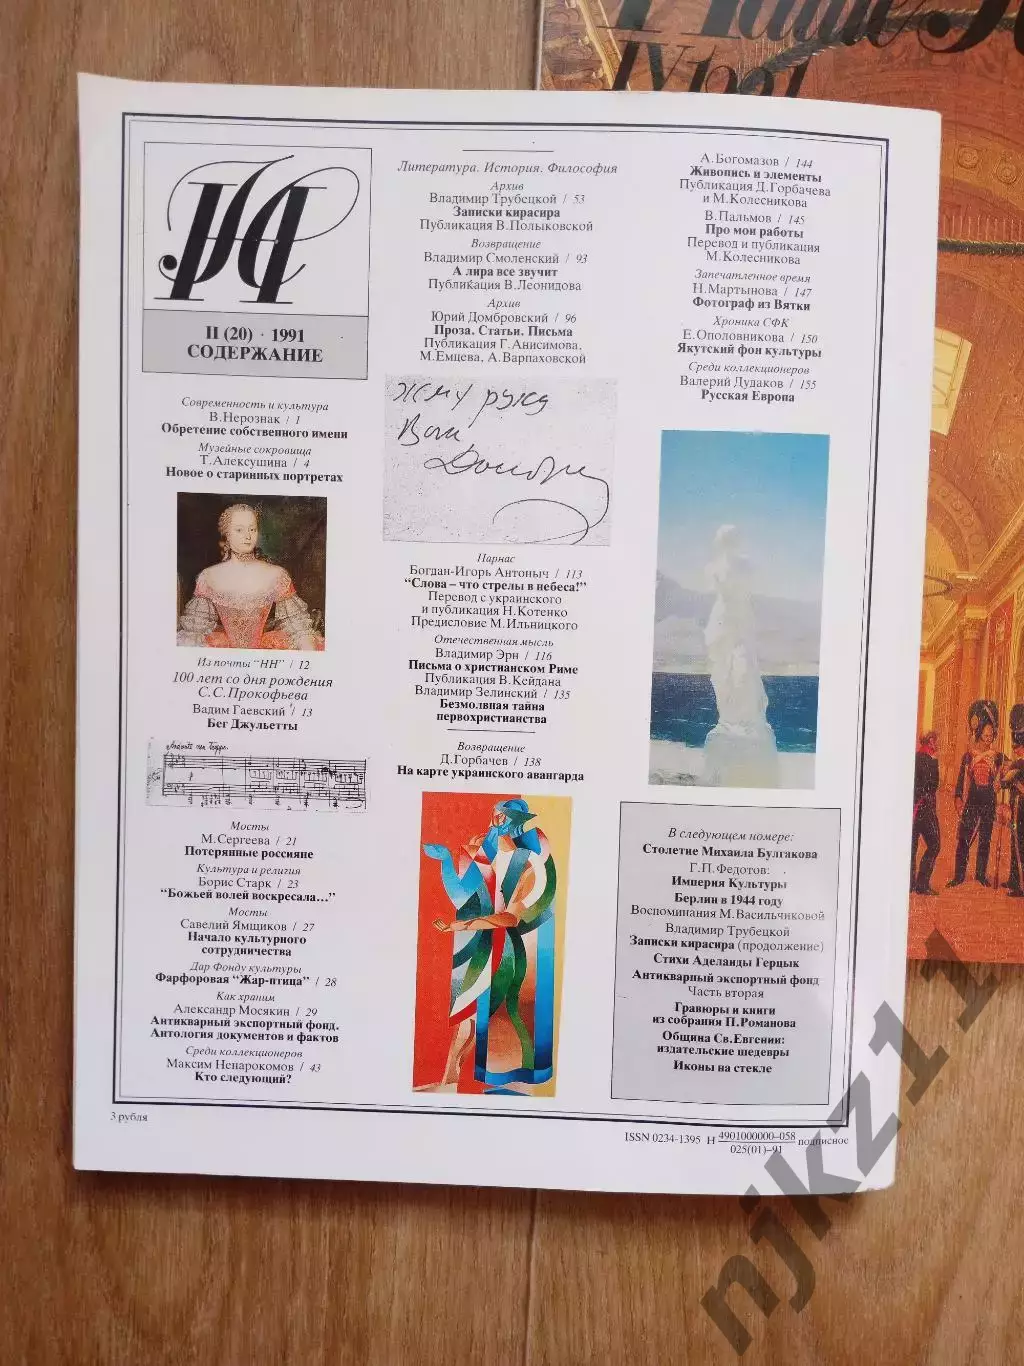 IV 1991
НН
II (20) · 1991
СОДЕРЖАНИЕ
Современность и культура
В.Нерознак / 1
Обретение собственного имени
Музейные сокровища
Т.Алексушина / 4
Новое о старинных портретах
Из почты "НН" / 12
100 лет со дня рождения
С.С.Прокофьева
Вадим Гаевский / 13
Бег Джульетты
Мосты
М.Сергеева / 21
Потерянные россияне
Культура и религия
Борис Старк / 23
"Божьей волей воскресала..."
Мосты
Савелий Ямщиков / 27
Начало культурного
сотрудничества
Дар Фонду культуры
Фарфоровая "Жар-птица" / 28
Как храним
Александр Мосякин / 29
Антикварный экспортный фонд.
Антология документов и фактов
Среди коллекционеров
Максим Ненарокомов / 43
Кто следующий?
Литература. История. Философия
Архив
Владимир Трубецкой / 53
Записки кирасира
Публикация В.Полыковской
Возвращение
Владимир Смоленский / 93
А лира все звучит
Публикация В.Леонидова
Архив
Юрий Домбровский / 96
Проза. Статьи. Письма
Публикация Г.Анисимова,
М.Емцева, А.Варпаховской
Жму руку
Ваш
Парнас
Богдан-Игорь Антоныч / 113
"Слова – что стрелы в небеса!"
Перевод с украинского
и публикация Н.Котенко
Предисловие М.Ильницкого
Отечественная мысль
Владимир Эрн / 116
Письма о христианском Риме
Публикация В.Кейдана
Владимир Зелинский / 135
Безмолвная тайна
первохристианства
Возвращение
Д.Горбачев / 138
На карте украинского авангарда
А.Богомазов / 144
Живопись и элементы
Публикация Д.Горбачева
и М.Колесникова
В.Пальмов / 145
Про мои работы
Перевод и публикация
М.Колесникова
Запечатленное время
Н.Мартынова / 147
Фотограф из Вятки
Хроника СФК
Е.Ополовникова / 150
Якутский фон культуры
Среди коллекционеров
Валерий Дудаков / 155
Русская Европа
В следующем номере:
Столетие Михаила Булгакова
Г.П.Федотов:
Империя Культуры
Берлин в 1944 году
Воспоминания М.Васильчиковой
Владимир Трубецкой
Записки кирасира (продолжение)
Стихи Аделаиды Герцык
Антикварный экспортный фонд
Часть вторая
Гравюры и книги
из собрания П.Романова
Община Св.Евгении:
издательские шедевры
Иконы на стекле
3 рубля
ISSN 0234-1395 Н 4901000000–058 подписное
025(01)–91
njkz11